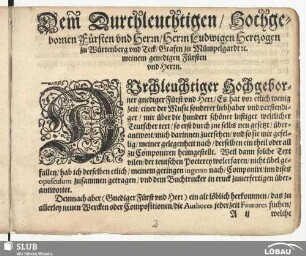 Dem Durchleuchtigen / Hochge-
bornen Fürsten vnd Herrn / Herrn Ludwigen Hertzogen
zu Würtenberg vnd Teck / Grafen zu Mümpelgardt ꝛc.
meinem gnedigen Fürsten
vnd Herrn.
DVrchleuchtiger Hochgebor-
ner gnediger Fürst vnd Herr / Es hat vor etlich wenig
jaren einer der Music sonderer liebhaber vnd verstendi-
ger / mir über die hundert schöner lustiger weltlicher
Teutscher text / so erst durch jne selbst in reimen gesetzt / über-
antwort vnnd darinnen zuersehen / vnd so sie mir gefel-
lig / meiner gelegenheit nach / derselben ein theil oder all
zu Componieren heimgestellt. Weil dann solche Text
vilen der teutschen Poeterey wolerfarnen / nicht übel ge-
fallen / hab ich derselben etlich / meinem geringen ingenio nach / Componiert / in dises
opusculum zusammen getragen / vnd dem Buchtrucker in truck zuuerfertigen über-
antwortet.
Demnach aber ( Gnediger Fürst vnd Herr ) ein alt löblich herkommen / das zu
allerley neuen Wercken oder Compositionen / die Authores jederzeit Fautores suchen /
A ij welche
SLUB
Wir führen Wissen.
LÖBAU